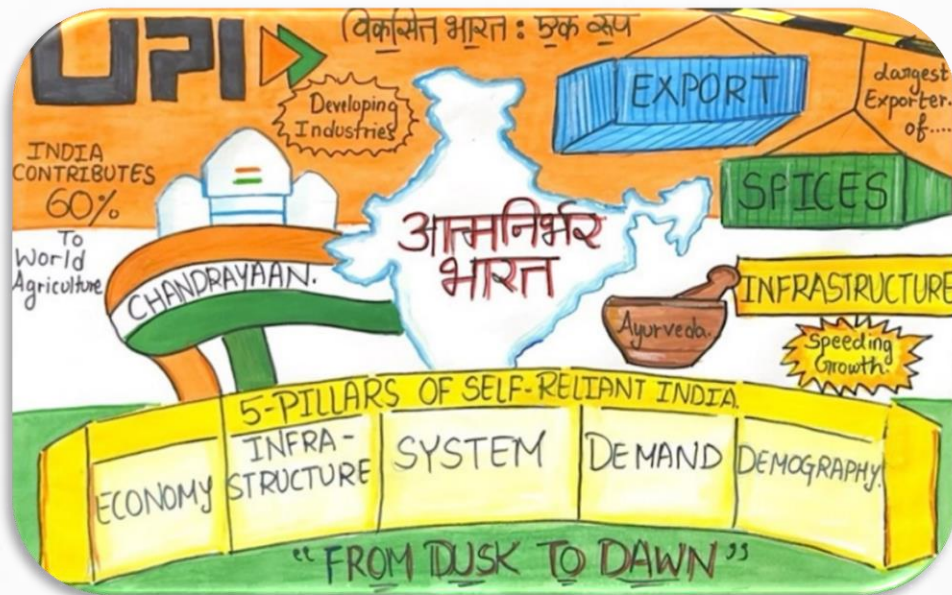 UPI
विकसित भारत : एक रूप
Developing
Industries
EXPORT
Largest
Exporter
of....
SPICES
INDIA
CONTRIBUTES
60%
To
World
Agriculture
CHANDRAYAAN.
आत्मनिर्भर
भारत
Ayurveda.
INFRASTRUCTURE
Speeding
Growth.
5-PILLARS OF SELF-RELIANT INDIA.
ECONOMY
INFRA-
STRUCTURE
SYSTEM
DEMAND
DEMOGRAPHY.
“FROM DUSK TO DAWN”